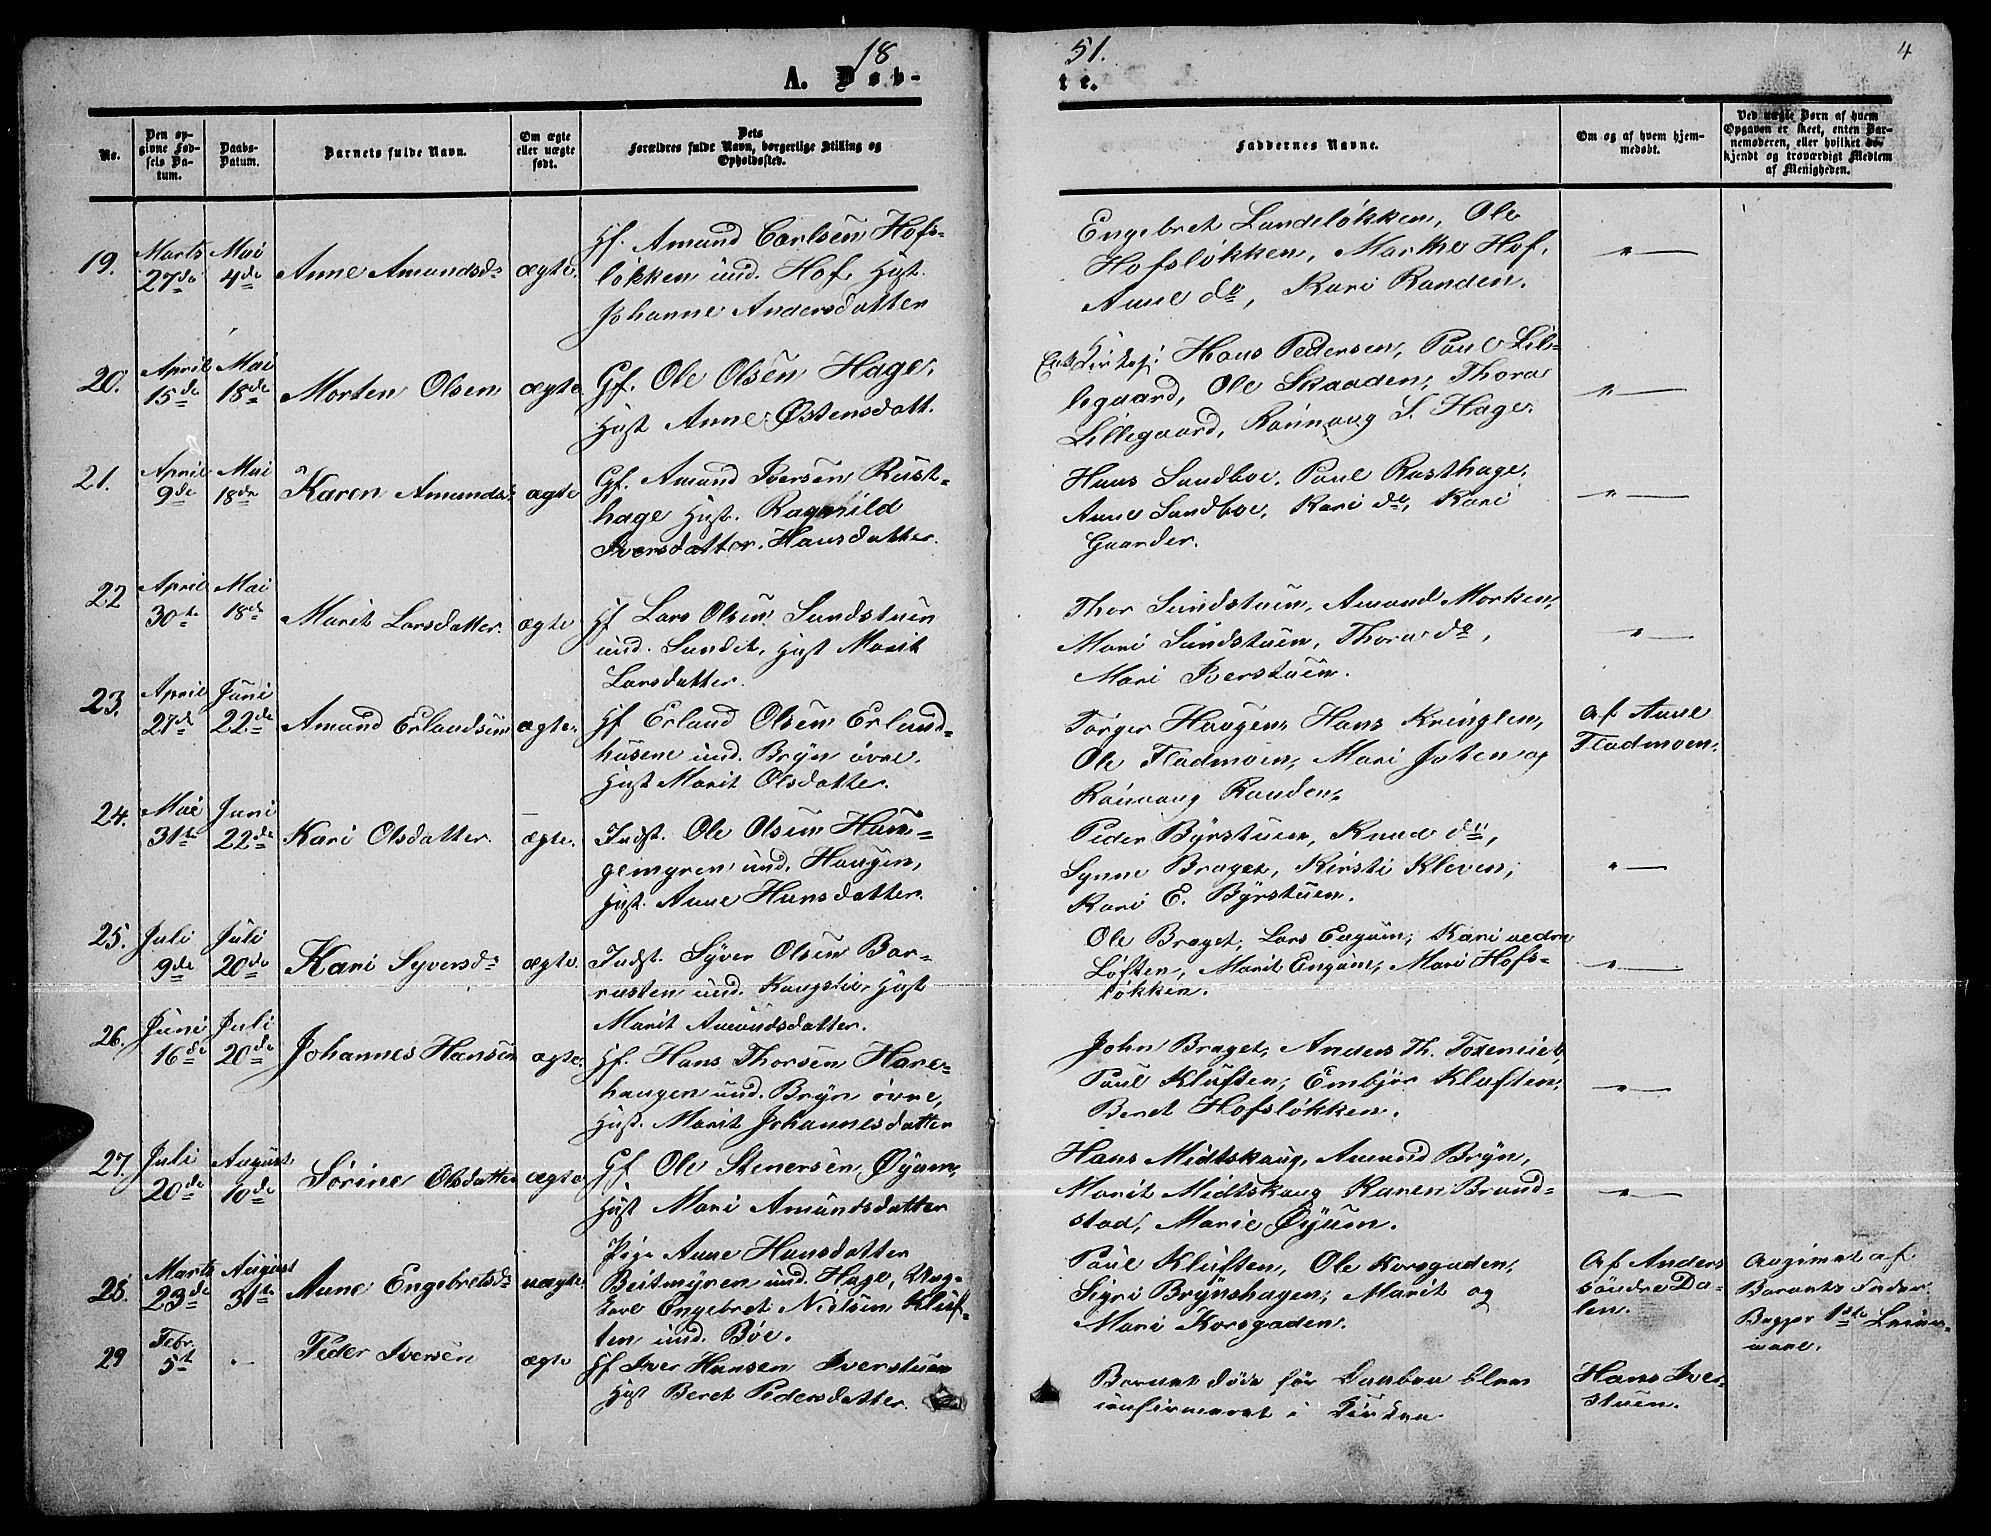 18 51. 4
A. Døb- te.
No.
Den op-
givne Fød-
sels Da-
tum.
Daabs-
Datum.
Barnets fulde Navn.
Om ægte
eller uægte
født.
Dets
Forældres fulde Navn, borgerlige Stilling og
Opholdssted.
Faddernes Navne.
Om og af hvem hjem-
medøbt.
Ved uægte Børn af hvem
Opgaven er skeet, enten Bar-
nemoderen, eller hvilket be-
kjendt og troværdigt Medlem
af Menigheden.
19.
Marts
27de
Mai
4de
Anne Amundsd:
ægte.
Gf. Amund Carlsen Hofs-
løkken und. Hof, Hust.
Johanne Andersdatter
Engebret Lundeløkken, Ole
Hofsløkken, Marthe Hof,
Anne do, Kari Randen.
"
20.
April
15de
Mai
18de
Morten Olsen
ægte
Gf. Ole Olsen Hage,
Hust Anne Østensdatt.
Hans Pedersen, Poul Lil-
legaard, Ole Skaaden, Thora
Lillegaard, Rønnaug S. Hage.
"
21.
April
9de
Mai
18de
Karen Amunds:
ægte
Gf. Amund Iversen Rust-
hage Hust. Ragnhild
Iversdatter. Hansdatter.
Hans Sundboe, Poul Rusthage,
Anne Sundboe, Kari do, Kari
Gaarder.
"
22
April
30te
Mai
18de
Marit Larsdatter.
ægte
Hf Lars Olsen Sundstuen
und. Sundet, Hust Marit
Larsdatter.
Thor Sundstuen, Amund Morken,
Mari Sundstuen, Thora do,
Mari Iverstuen.
"
23.
April
27de
Juni
22de
Amund Erlandsen
ægte.
Hf Erland Olsen Erland-
husene und. Bryn øvre.
Hust Marit Olsdatter.
Torger Haugen, Hans Kringlen,
Ole Fladmoen, Mari Joten og
Rønnaug Randen.
Af Anne
Fladmoen.
24.
Mai
31te
Juni
22de
Kari Olsdatter.
ægte.
Indst. Ole Olsen Hau-
gemyren und. Haugen,
Hust. Anne Hansdatter.
Peder Byrstuen, Knud do,
Synne Braget, Kirsti Kleven,
Kari E. Byrstuen.
"
25.
Juli
9de
Juli
20de
Kari Syversd:
ægte.
Indst. Syver Olsen Bar-
rusten und. Kongslie, Hust
Marit Amundsdatter.
Ole Braget, Lars Engum, Kari nedre
Løften, Marit Engum, Mari Hofs-
løkken.
"
26.
Juni
16de
Juli
20de
Johannes Hansen
ægte.
Hf. Hans Thorsen Hare-
haugen und. Bryn øvre,
Hust. Marit Johannesdatter
John Braget, Anders Th.
Poul Kluften, Embjør Kluften,
Beret Hofsløkken.
"
27.
Juli
20de
August
10de
Sørine Olsdatter
ægte
Gf Ole Stenersen Øyum,
Hust Mari Amundsdatter
Hans Midtskaug, Amund Bryn,
Marit Midtskaug Karen Brand-
stad, Marie Øyum.
"
28.
Marts
23de
August
31te
Anne Engebretsd:
uægte.
Pige Anne Hansdatter
Beitmyren und. Hage, Ung-
karl Engebret Nielsen Kluf-
ten und. Bøe.
Poul Kluften, Ole Korsgaden,
Sigri Brynshagen, Marit og
Mari Korsgaden.
Af Anders
søndre Da-
len.
Angivet af
Barnets Fader.
Begges 1ste Leier-
maal.
29
Febr.
5te
"
Peder Iversen
ægte
Gf Iver Hansen Iverstuen
Hust Beret Pedersdatter.
Barnet døde før Daaben blev
confirmeret i Kirken
Hans Iver-
stuen.